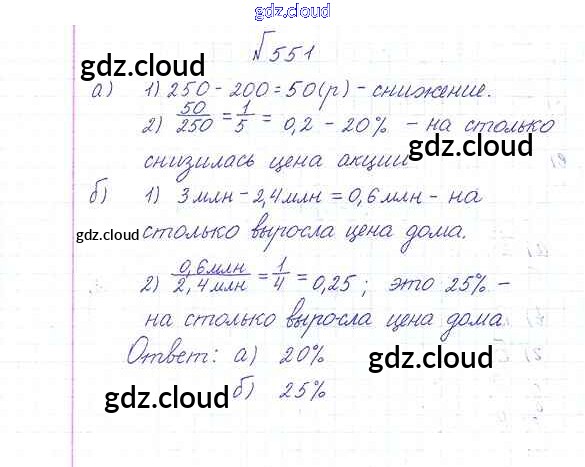 gdz.cloud
№551
gdz.cloud
а) 1) 250 - 200 = 50 (р) - снижение.
2) 50/250 = 1/5 = 0,2 - 20% - на столько
gdz.cloud
снизилась цена акции
б) 1) 3 млн - 2,4 млн = 0,6 млн - на
gdz.cloud
столько выросла цена дома.
2) 0,6 млн/2,4 млн = 1/4 = 0,25 ; это 25% -
на столько выросла цена дома
Ответ: а) 20%
gdz.cloud
б) 25%
gdz.cloud